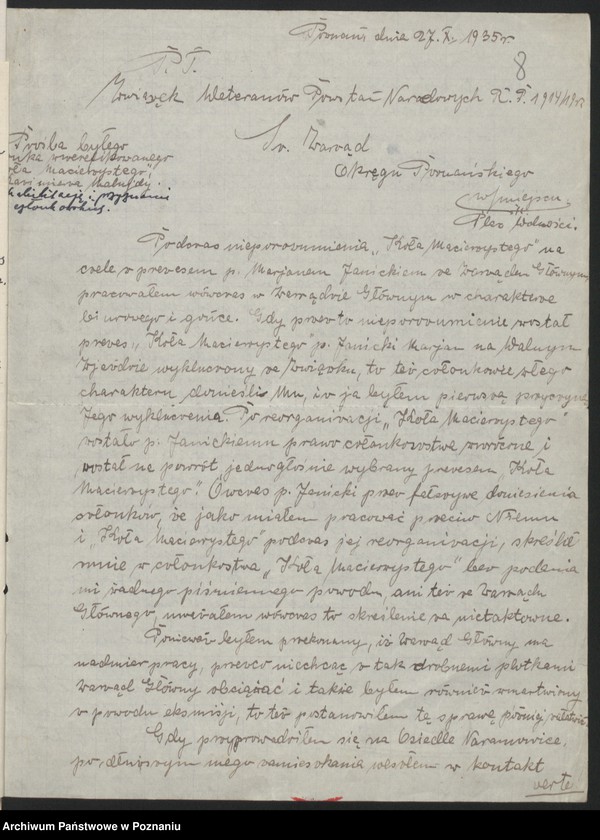 Poznań, dnia 27. X. 1935 r.
8
P. T.
Związek Weteranów Powstań Narodowych R. P. 1914/19
Sz. Zarząd
Okręgu Poznańskiego
w/miejscu.
Plac Wolności.
Prośba byłego
zweryfikowanego
Koła Macierzystego",
rehabilitację i przyznanie
członkostwa.
Podczas nieporozumienia „Koła Macierzystego" na
czele z prezesem p. Marjanem Janickiem ze Zarządem Głównym,
pracowałem wówczas w Zarządzie Głównym w charakterze
biurowego i gońca. Gdy przez to nieporozumienie został
prezes „Koła Macierzystego" p. Janicki Marjan na Walnym
Zjeździe wykluczony ze Związku, to też członkowie złego
charakteru donieśli Mu, iż ja byłem pierwszą przyczyną
Jego wykluczenia. Po reorganizacji „Koła Macierzystego"
zostało p. Janickiemu prawo członkostwa zwrócone, i
został na powrót jednogłośnie wybrany prezesem „Koła
Macierzystego". Ówczes p. Janicki przez fałszywe doniesienia
członków, że jako miałem pracować przeciw Niemu
i „Koła Macierzystego" podczas jej reorganizacji, skreślił
mnie z członkostwa „Koła Macierzystego" bez podania
mi żadnego piśmiennego powodu, ani też ze Zarządu
Głównego, uważałem wówczas to skreślenie za nietaktowne.
Ponieważ byłem przekonany, iż Zarząd Główny ma
nadmiar pracy, przeto niechcąc z tak drobnemi plotkami
Zarząd Główny obciążać i także byłem również zmartwiony
z powodu eksmisji, to też postanowiłem tę sprawę później załatwić.
Gdy przyprowadziłem się na Osiedle Naramowice,
po dłuższym mego zamieszkania weszłem w kontakt
verte
Archiwum Państwowe w Poznaniu